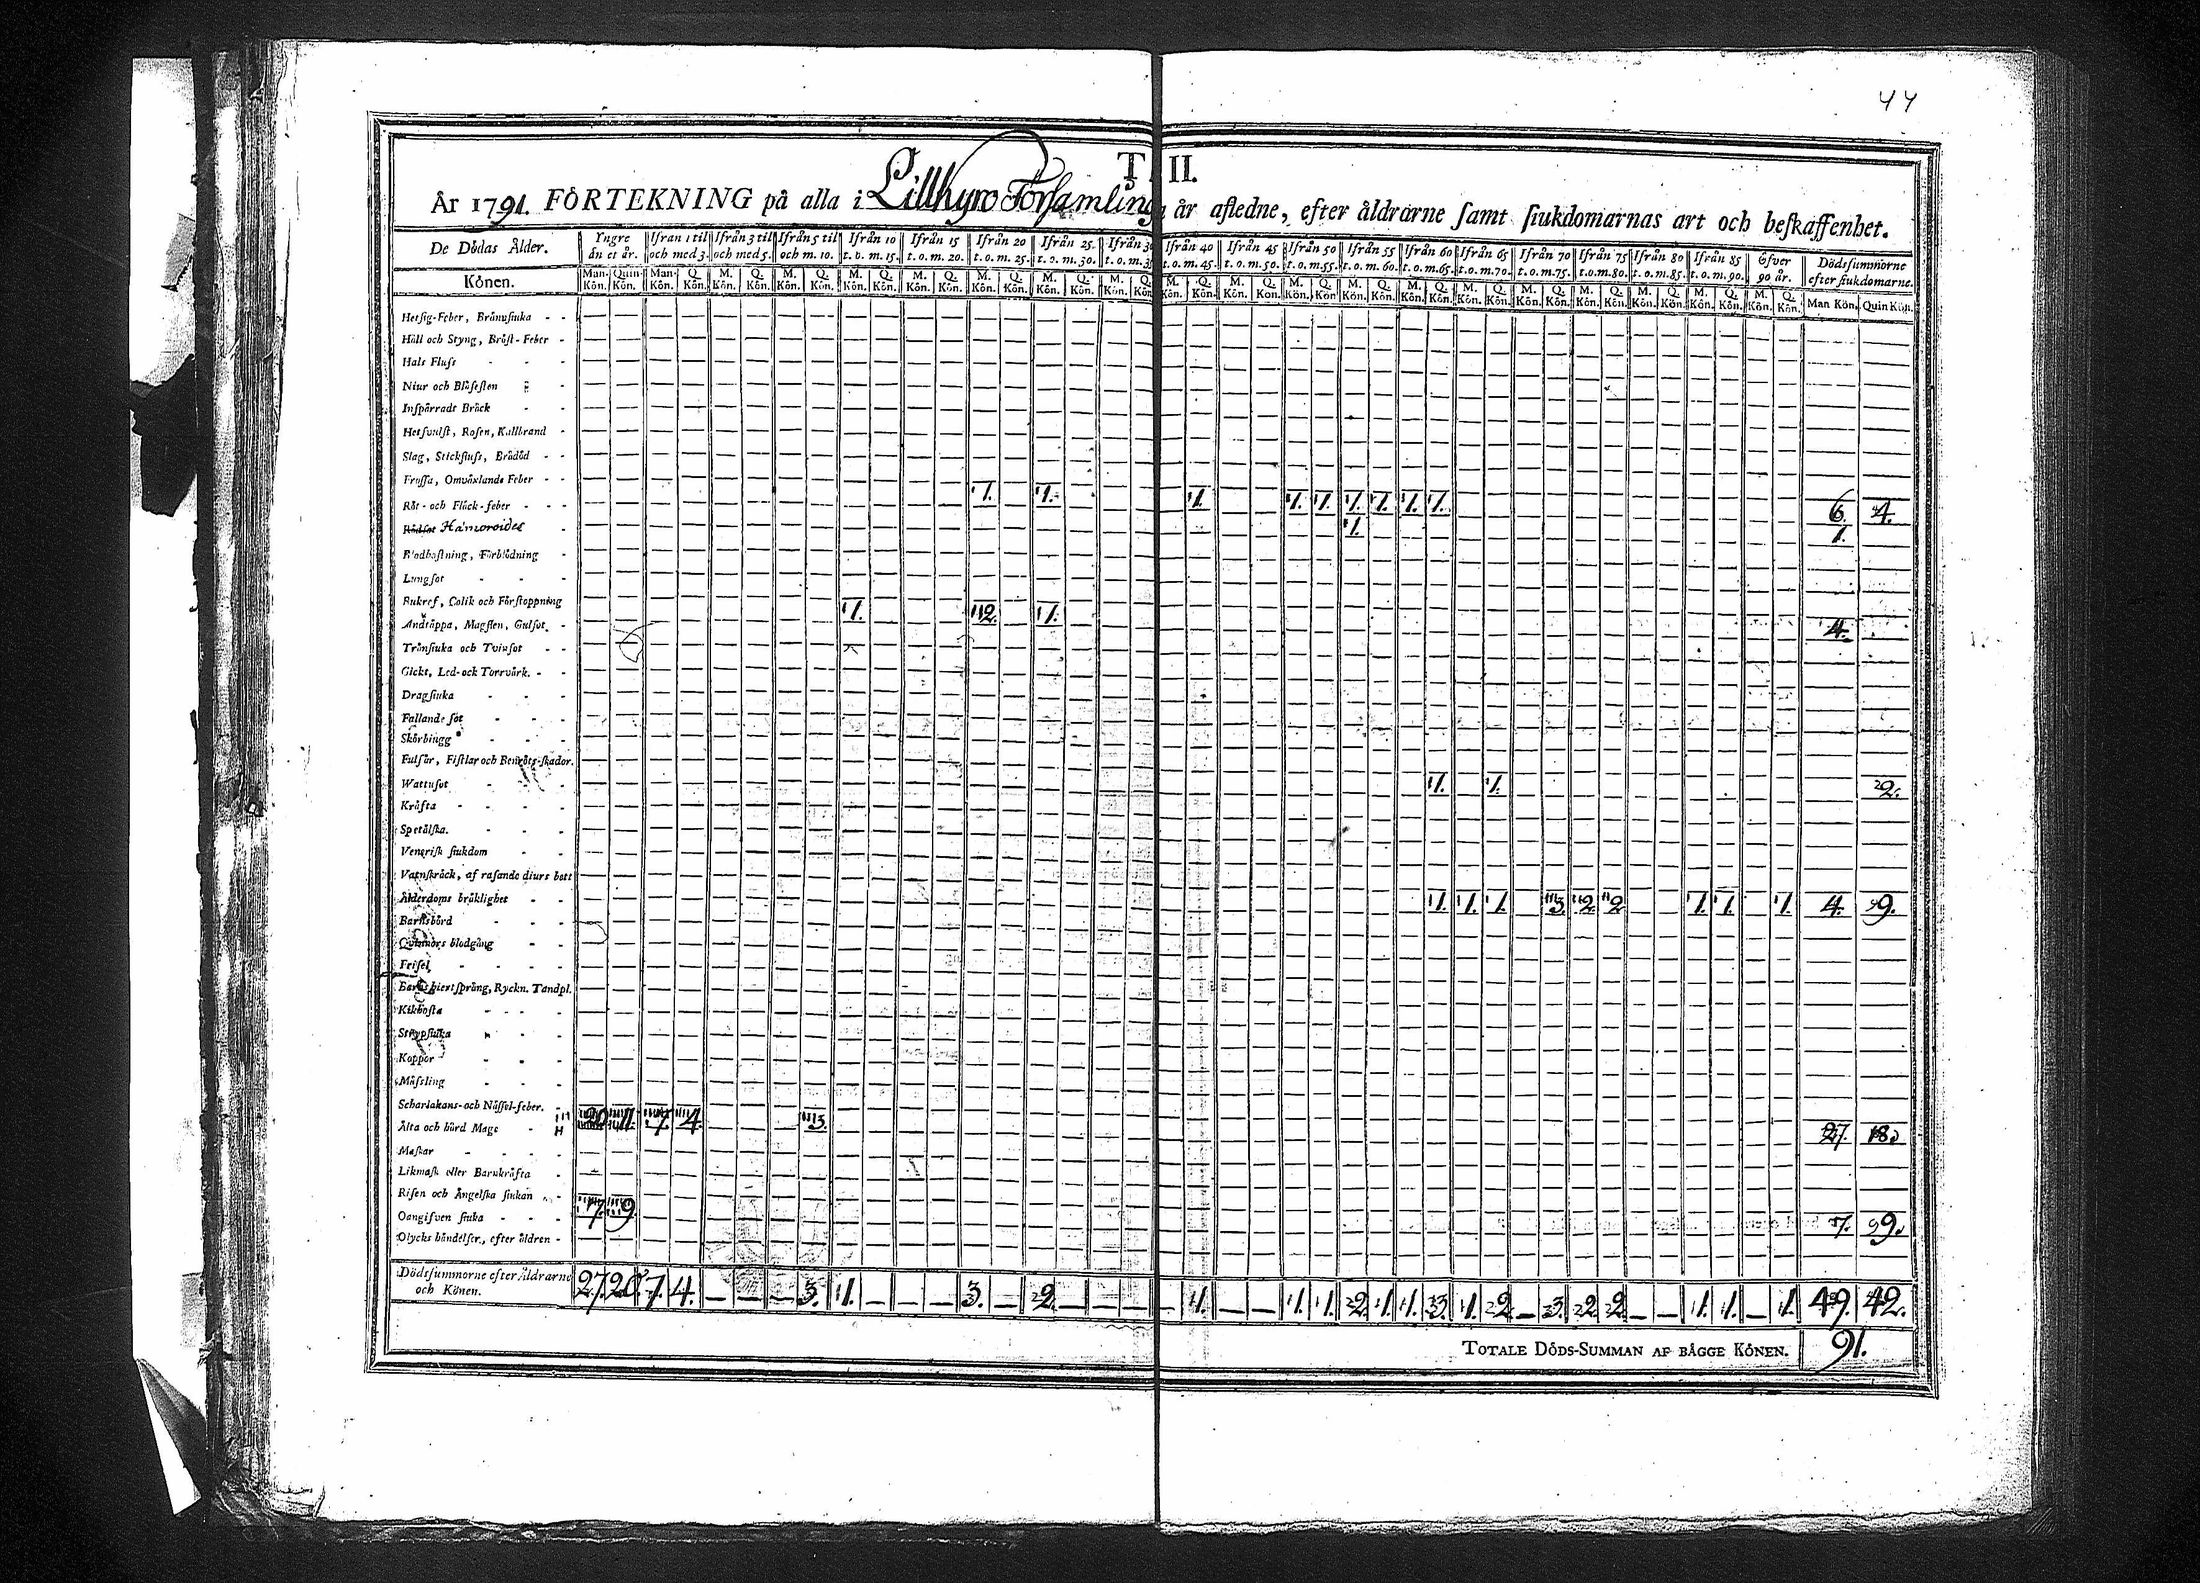 44
T II.
År 1791. FÖRTEKNING på alla i Lillkyro Församling år afledne, efter åldrarne samt siukdomarnas art och beskaffenhet.
De Dödas Ålder. Yngre än et år. Ifrån 1 til och med 3. Ifrån 3 til och med 5. Ifrån 5 til och m. 10. Ifrån 10 t. o. m. 15. Ifrån 15 t. o. m. 20. Ifrån 20 t. o. m. 25. Ifrån 25 t. o. m. 30. Ifrån 30 t. o. m. 35 Ifrån 40 t. o. m. 45. Ifrån 45 t. o. m. 50. Ifrån 50 t. o. m. 55. Ifrån 55 t. o. m. 60. Ifrån 60 t. o. m. 65. Ifrån 65 t. o. m. 70. Ifrån 70 t. o. m. 75. Ifrån 75 t. o. m. 80. Ifrån 80 t. o. m. 85. Ifrån 85 t. o. m. 90. Öfver 90 år. Dödssummorne efter siukdomarne.
Könen. Man-Kön. Quin-Kön. Man-Kön. Q. Kön. M. Kön. Q. Kön. M. Kön. Q. Kön. M. Kön. Q. Kön. M. Kön. Q. Kön. M. Kön. Q. Kön. M. Kön. Q. Kön. M. Kön. Q. Kön. M. Kön. Q. Kön. M. Kön. Q. Kön. M. Kön. Q. Kön. M. Kön. Q. Kön. M. Kön. Q. Kön. M. Kön. Q. Kön. M. Kön. Q. Kön. M. Kön. Q. Kön. M. Kön. Q. Kön. M. Kön. Q. Kön. M. Kön. Q. Kön. Man Kön. Quin Kön.
Hetsig-Feber, Brännsiuka - -
Håll och Styng, Bröst-Feber -
Hals Fluss - -
Niur och Blåsesten -
Inspärradt Bråck - -
Hetsvulst, Rosen, Kallbrand -
Slag, Stickfluss, Brådöd - -
Frossa, Omväxlande Feber - -
Röt- och Fläck-feber - - - 1. 1. 1. 1. 1. 1. 1. 1. 1. 6. 4.
Rödsot Hämoroider - 1. 1.
Blodhostning, Förblödning -
Lungsot - - -
Bukref, Colik och Förstoppning
Andtäppa, Magsten, Gulsot. - 1. 2. 1. 4.
Trånsiuka och Tvinsot - -
Gickt, Led- och Torrvärk. - -
Dragsiuka - - -
Fallande sot - - -
Skörbiugg - - -
Fulsår, Fistlar och Benröts-skador.
Wattusot - - 1. 1. 2.
Kräfta - - - -
Spetälska. - - -
Venerisk siukdom - -
Vatnskräck, af rasande diurs bett
Ålderdoms bräklighet - - 1. 1. 1. 3. 2. 2 1. 1. 1. 4. 9.
Barnsbörd - -
Quinnors blodgång - -
Frisel - - - -
Barns hiertsprång, Ryckn. Tandpl.
Kikhosta - - -
Strypsiuka - - -
Koppor - - -
Mässling - - -
Scharlakans- och Nässel-feber.
Älta och hård Mage - 20 11. 7. 4. 3. 27. 18.
Maskar - - - -
Likmask eller Barnkräfta -
Risen och Ängelska siukan - -
Oangifven siuka - - - 7. 9 7. 9.
Olycks händelser, efter åldren -
Dödssummorne efter Åldrarne och Könen. 27. 20. 7. 4. — — — 3. 1. — — — 3. — 2. — — — — 1. — — 1. 1. 2. 1. 1. 3. 1. 2. — 3. 2. 2. — — 1. 1. — 1. 49. 42.
TOTALE DÖDS-SUMMAN AF BÄGGE KÖNEN. 91.